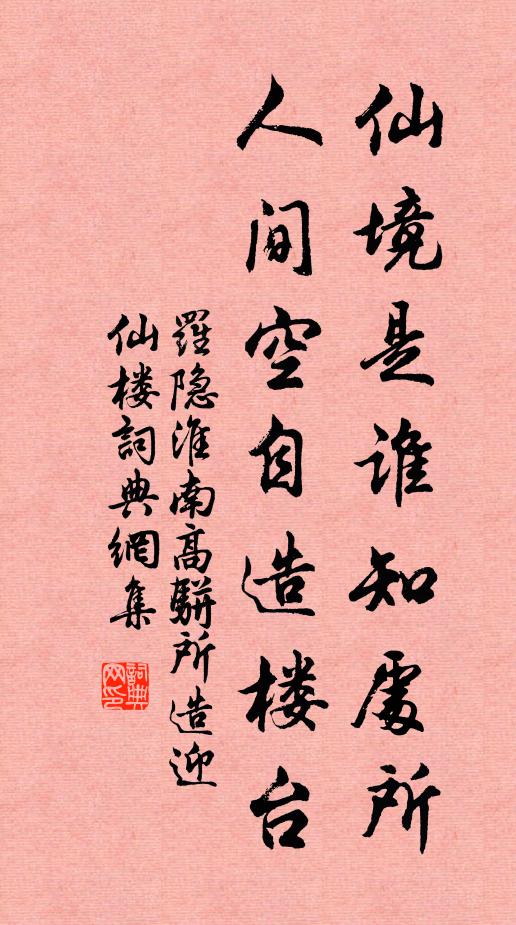 仙境是谁知处所
人间空自造楼台
羅隐淮南高駢所造迎
仙楼詞典網集
詞典网印